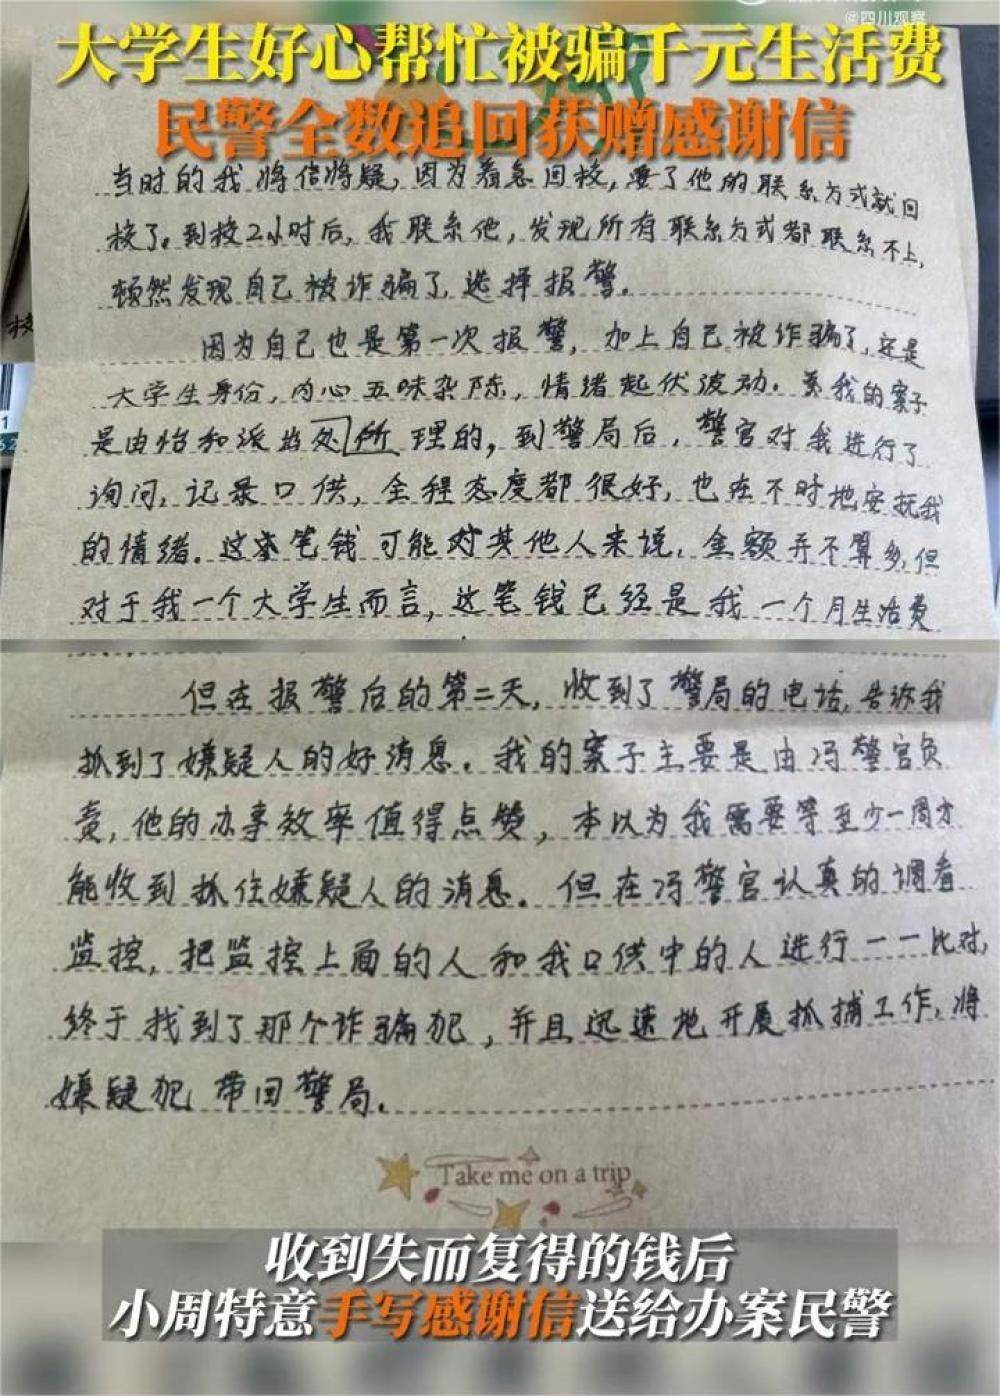 @四川观察
大学生好心帮忙被骗千元生活费
民警全数追回获赠感谢信
当时的我将信将疑,因为着急回校,要了他的联系方式就回
校了。到校2小时后,我联系他,发现所有联系方式都联系不上,
顿然发现自己被诈骗了,选择报警。
因为自己也是第一次报警,加上自己被诈骗了,还是
大学生身份,内心五味杂陈,情绪起伏波动。我的案子
是由怡和派出处所理的,到警局后,警官对我进行了
询问,记录口供,全程态度都很好,也在不时地安抚我
的情绪。这笔钱可能对其他人来说,金额并不算多,但
对于我一个大学生而言,这笔钱已经是我一个月生活费
但在报警后的第二天,收到了警局的电话,告诉我
抓到了嫌疑人的好消息。我的案子主要是由冯警官负
责,他的办事效率值得点赞,本以为我需要等至少一周才
能收到抓住嫌疑人的消息。但在冯警官认真的调看
监控,把监控上面的人和我口供中的人进行一一比对,
终于找到了那个诈骗犯,并且迅速地开展抓捕工作,将
嫌疑犯带回警局。
Take me on a trip
收到失而复得的钱后
小周特意手写感谢信送给办案民警